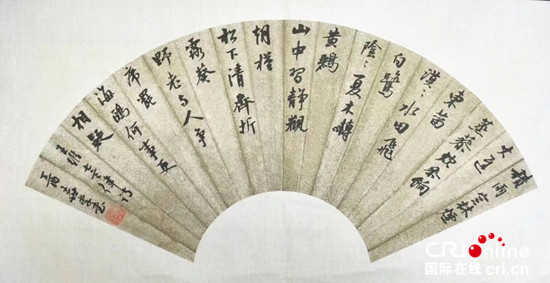 積雨空林煙
火遲
蒸藜炊黍餉
東菑
漠〻水田飛
白鷺
陰〻夏木囀
黃鸝
山中習靜觀
朝槿
松下清齋折
露葵
野老与人爭
席罷
海鷗何事更
相疑
王維七言律詩
CRI online
国际在线 cri.cn